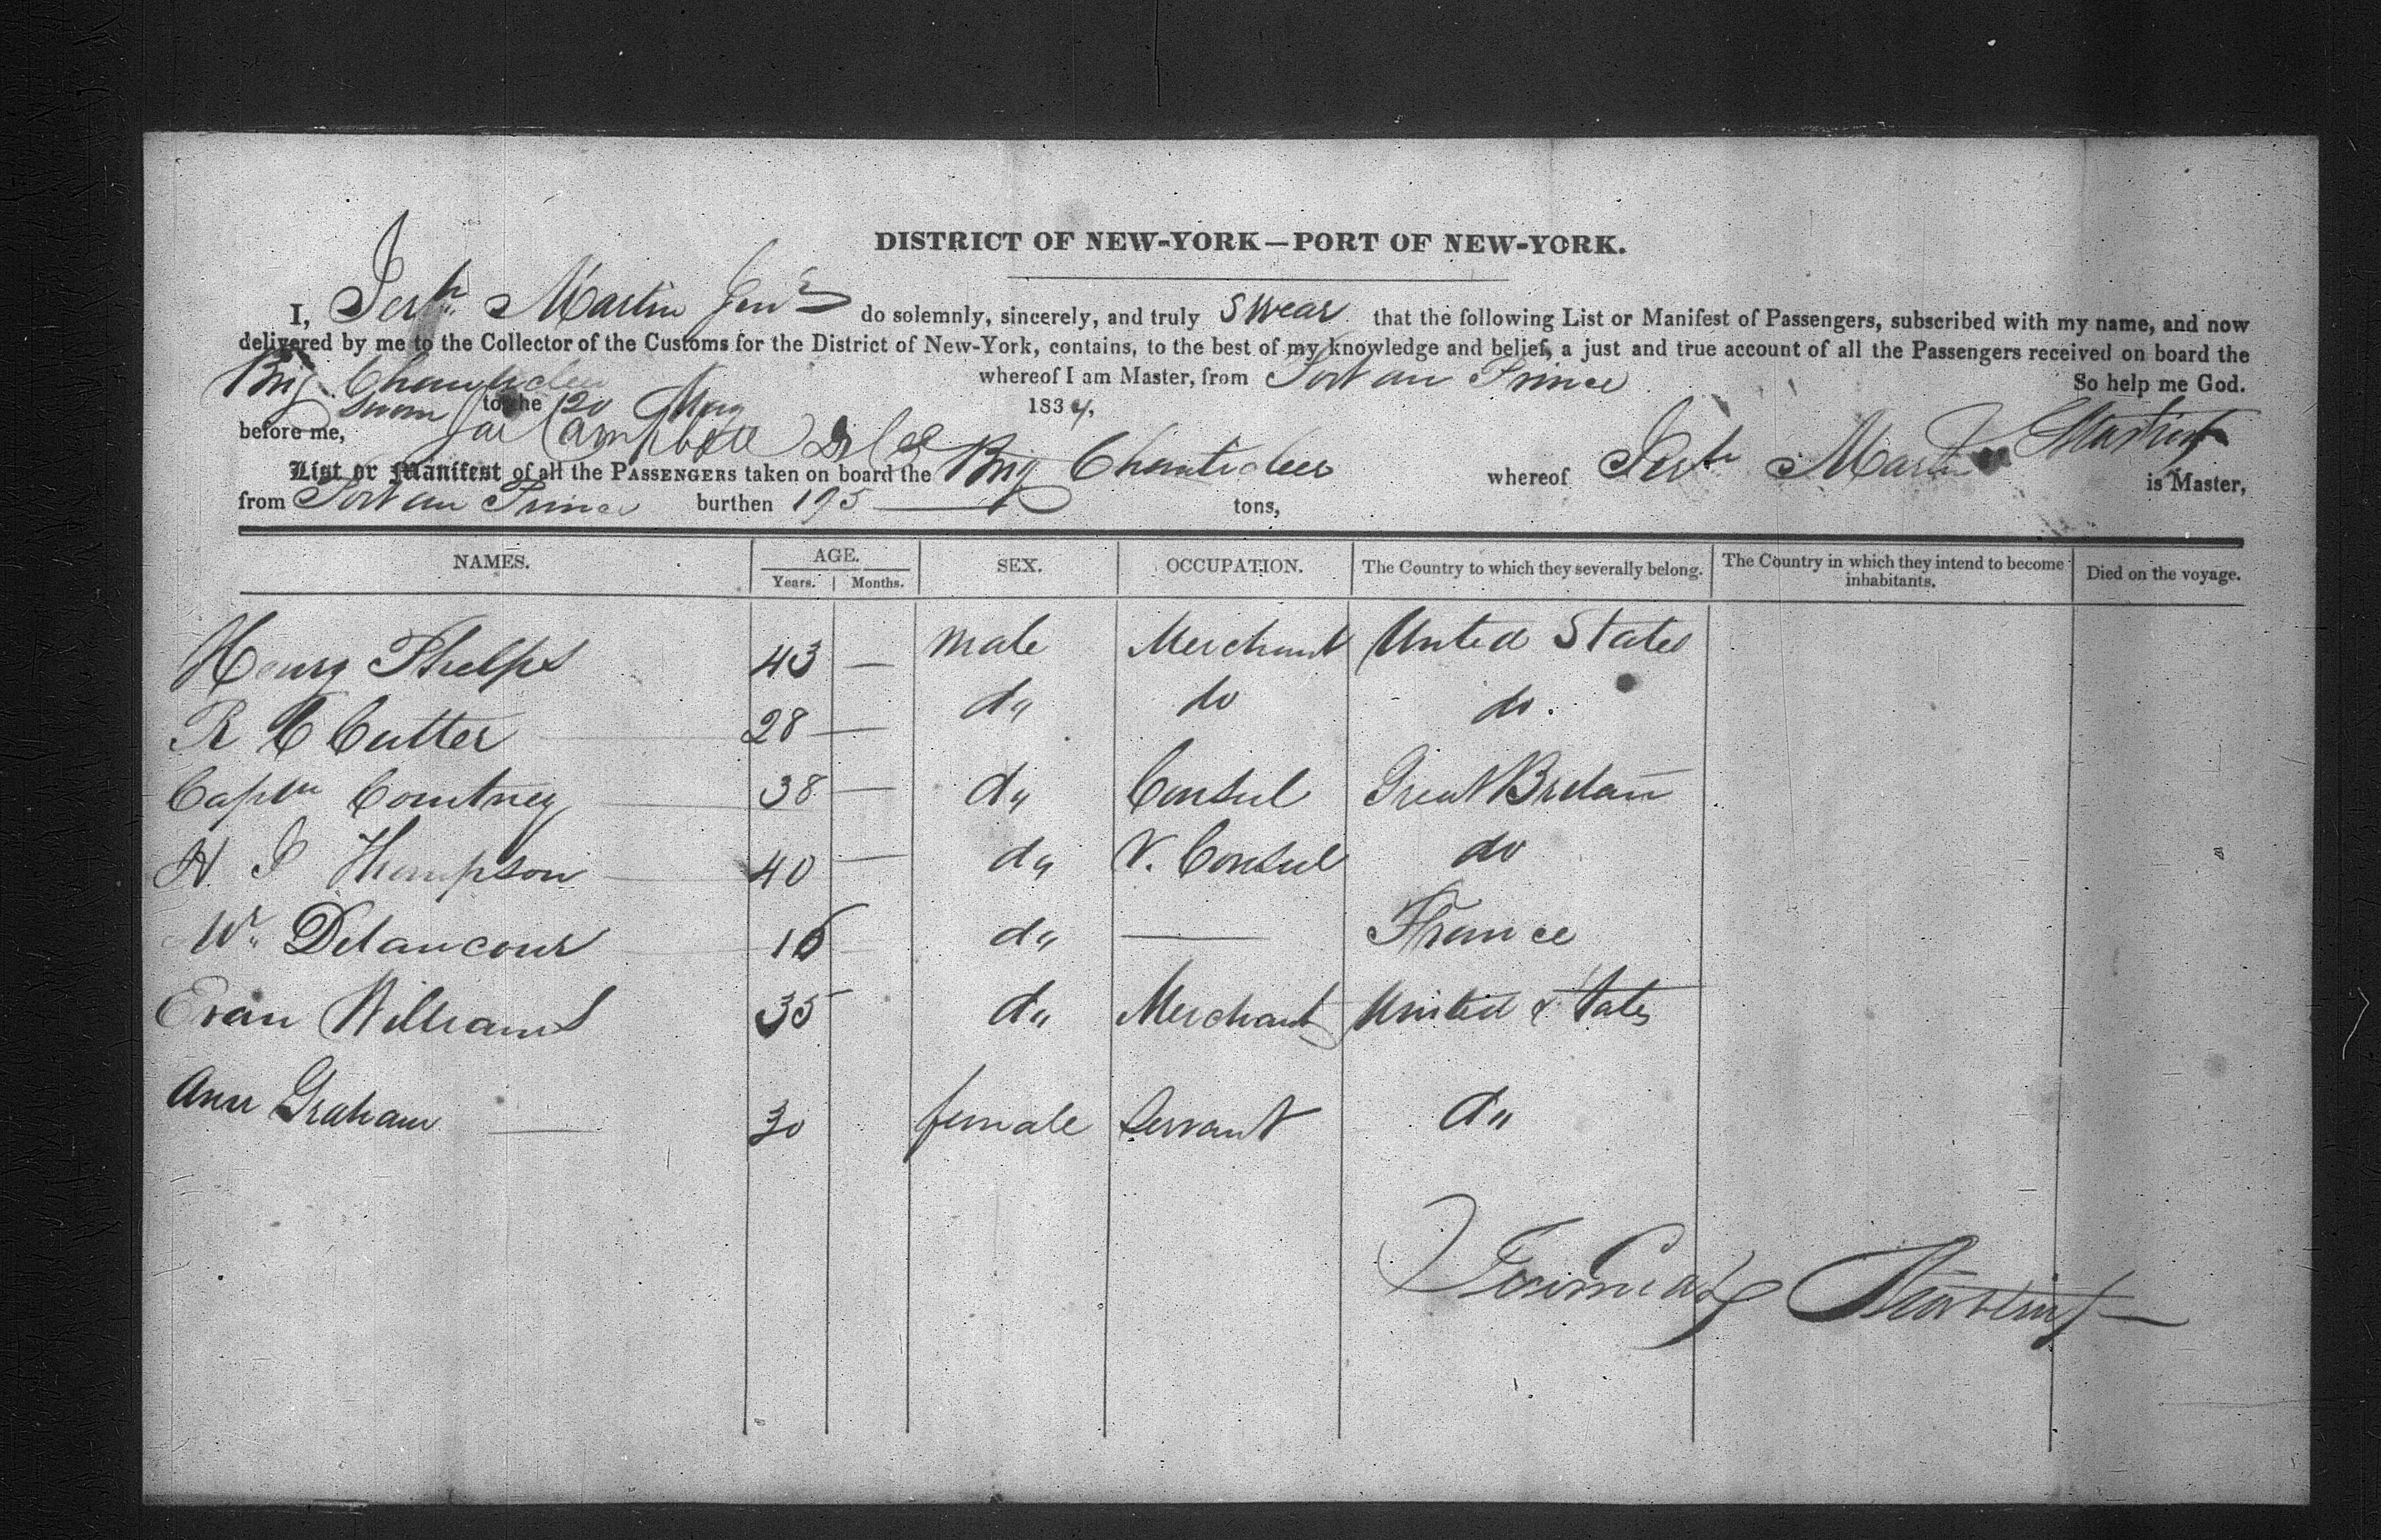 DISTRICT OF NEW-YORK—PORT OF NEW-YORK.
I, Martin do solemnly, sincerely, and truly Swear that the following List or Manifest of Passengers, subscribed with my name, and now
delivered by me to the Collector of the Customs for the District of New-York, contains, to the best of my knowledge and belief, a just and true account of all the Passengers received on board the
Brig Chanticleer whereof I am Master, from Port au Prince So help me God.
Sworn to the 20 May 1834,
before me, Campbell
List or Manifest of all the PASSENGERS taken on board the Brig Chanticleer whereof Martin is Master,
from Port au Prince burthen 195 tons,
NAMES. AGE. SEX. OCCUPATION. The Country to which they severally belong. The Country in which they intend to become inhabitants. Died on the voyage.
Years. Months.
Henry Phelps 43 — male Merchant United States
R C Cutter 28 — do do do.
Captn Courtney 38 — do Consul Great Britain
H. Thompson 40 — do V. Consul do
Delancour 16 — do — France
Evan Williams 35 do Merchant United States
Ann Graham — 30 female Servant do